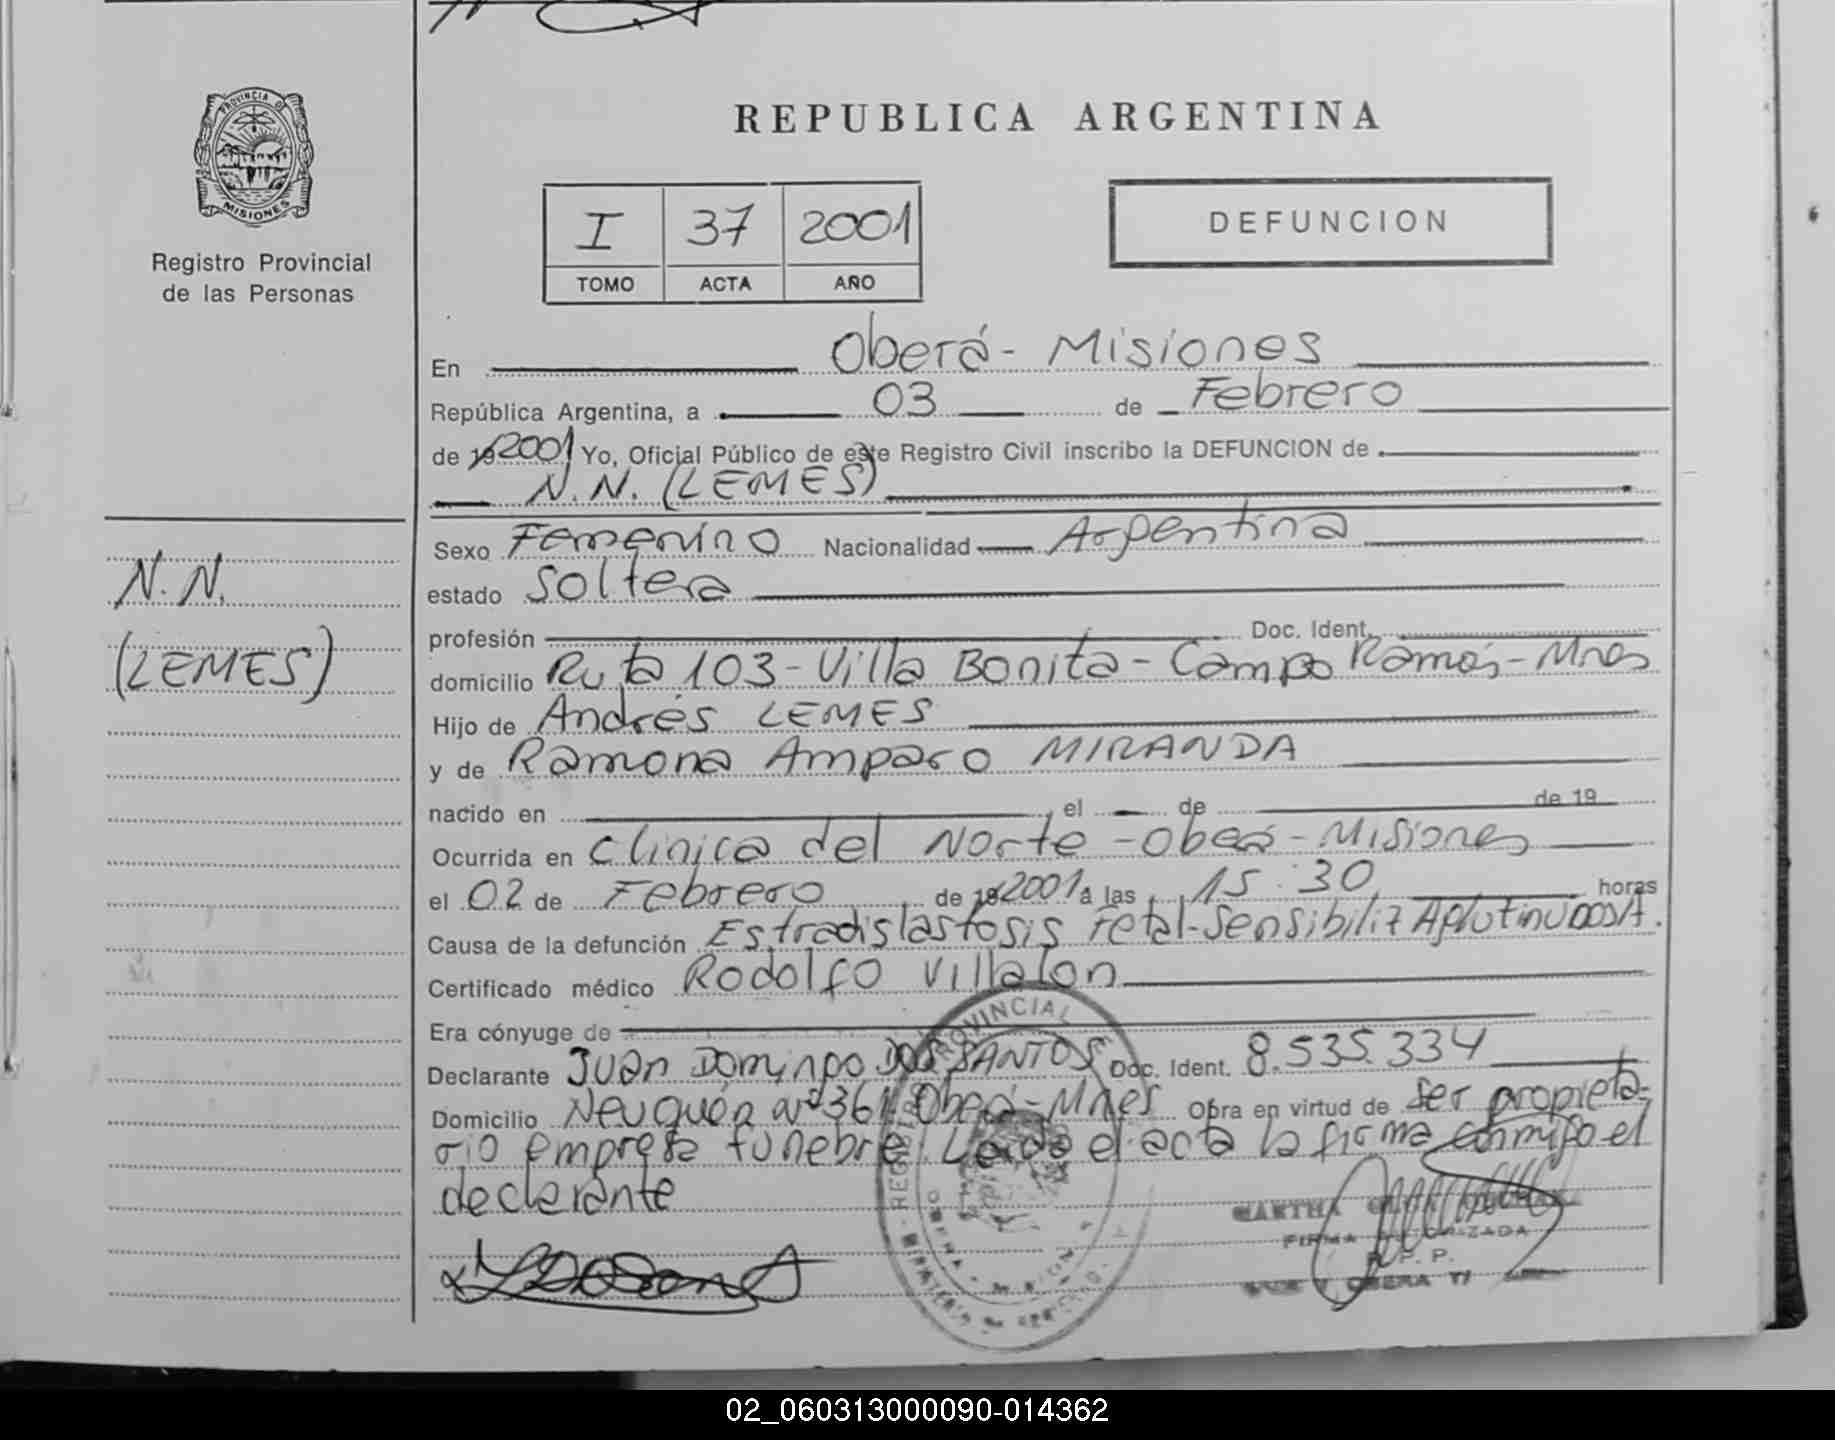 PROVINCIA DE
MISIONES
Registro Provincial
de las Personas
N.N.
(LEMES)
REPUBLICA ARGENTINA
I 37 2001
TOMO ACTA AÑO
DEFUNCION
En Oberá - Misiones
República Argentina, a 03 de Febrero
de 192001 Yo, Oficial Público de este Registro Civil inscribo la DEFUNCION de
N.N. (LEMES)
Sexo Femenino Nacionalidad Argentina
estado Soltera
profesión Doc. Ident.
domicilio Ruta 103 - Villa Bonita - Campo Ramós - Mnes
Hijo de Andrés LEMES
y de Ramona Amparo MIRANDA
nacido en el de de 19
Ocurrida en Clinica del Norte - Oberá - Misiones
el 02 de Febrero de 192001 a las 15:30 horas
Causa de la defunción Estradislastosis Fetal - Sensibiliz
Certificado médico Rodolfo Villalon
Era cónyuge de
Declarante Juan Domingo DOS SANTOS Doc. Ident. 8.535.334
Domicilio Neuquén Nº 361 Oberá - Mnes Obra en virtud de ser propieta-
rio empresa fúnebre. Leida el acta la firma conmigo el
declarante
REGISTRO PROVINCIAL
OBERA - MISIONES
MINISTERIO DE GOBIERNO
MARTHA
FIRMA AUTORIZADA
R. P. P.
OBERA
02_060313000090-014362